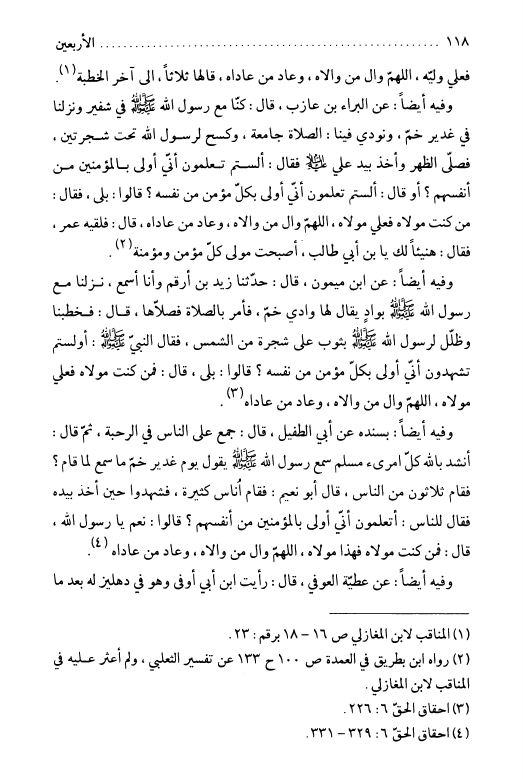 ١١٨ ........................................................ الأربعين
فعلي وليّه ، اللهمّ وال من والاه ، وعاد من عاداه ، قالها ثلاثاً ، الى آخر الخطبة(١).
وفيه أيضاً : عن البراء بن عازب ، قال : كنّا مع رسول الله ﷺ في شفير ونزلنا
في غدير خمّ ، ونودي فينا : الصلاة جامعة ، وكسح لرسول الله تحت شجرتين ،
فصلّى الظهر وأخذ بيد علي عليه السلام فقال : ألستم تعلمون أنّي أولى بالمؤمنين من
أنفسهم ؟ أو قال : ألستم تعلمون أنّي أولى بكلّ مؤمن من نفسه ؟ قالوا : بلى ، فقال :
من كنت مولاه فعلي مولاه ، اللهمّ وال من والاه ، وعاد من عاداه ، قال : فلقيه عمر ،
فقال : هنيئاً لك يا بن أبي طالب ، أصبحت مولى كلّ مؤمن ومؤمنة(٢) .
وفيه أيضاً : عن ابن ميمون ، قال : حدّثنا زيد بن أرقم وأنا أسمع ، نزلنا مع
رسول الله ﷺ بوادٍ يقال لها وادي خمّ ، فأمر بالصلاة فصلّاها ، قال : فخطبنا
وظلّل لرسول الله ﷺ بثوب على شجرة من الشمس ، فقال النبيّ ﷺ : أولستم
تشهدون أنّي أولى بكلّ مؤمن من نفسه ؟ قالوا : بلى ، قال : فمن كنت مولاه فعلي
مولاه ، اللهمّ وال من والاه ، وعاد من عاداه(٣) .
وفيه أيضاً : بسنده عن أبي الطفيل ، قال : جمع على الناس في الرحبة ، ثمّ قال :
أنشد بالله كلّ امرىء مسلم سمع رسول الله ﷺ يقول يوم غدير خمّ ما سمع لما قام ؟
فقام ثلاثون من الناس ، قال أبو نعيم : فقام اُناس كثيرة ، فشهدوا حين أخذ بيده
فقال للناس : أتعلمون أنّي أولى بالمؤمنين من أنفسهم ؟ قالوا : نعم يا رسول الله ،
قال : فمن كنت مولاه فهذا مولاه ، اللهمّ وال من والاه ، وعاد من عاداه (٤).
وفيه أيضاً : عن عطيّة العوفي ، قال : رأيت ابن أبي أوفى وهو في دهليز له بعد ما
(١) المناقب لابن المغازلي ص ١٦ – ١٨ برقم : ٢٣.
(٢) رواه ابن بطريق في العمدة ص ١٠٠ ح ١٣٣ عن تفسير الثعلبي ، ولم أعثر عليه في
المناقب لابن المغازلي .
(٣) احقاق الحقّ ٦ : ٢٢٦.
(٤) احقاق الحقّ ٦ : ٣٢٩ – ٣٣١.